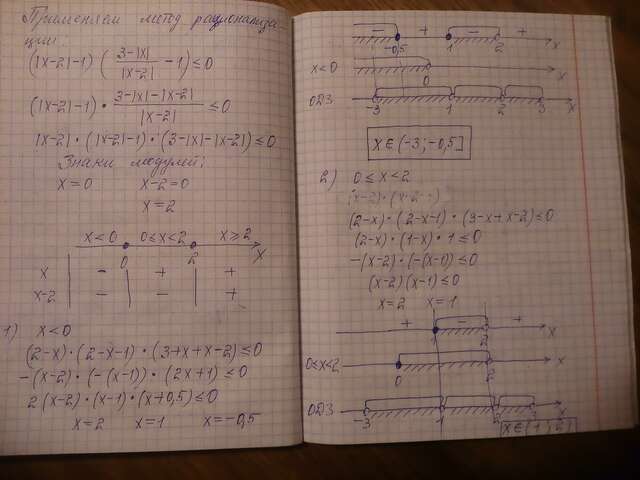 Применяем метод рационализа-
ции:
(|x-2|-1) (3-|x|/|x-2| - 1) ≤ 0
(|x-2|-1) · 3-|x|-|x-2|/|x-2| ≤ 0
|x-2| · (|x-2|-1) · (3-|x|-|x-2|) ≤ 0
Знаки модулей:
x=0 x-2=0
x=2
x<0 0≤x<2 x≥2
0 2 x
x - + +
x-2 - - +
1) x<0
(2-x) · (2-x-1) · (3+x+x-2) ≤ 0
-(x-2) · (-(x-1)) · (2x+1) ≤ 0
2(x-2) · (x-1) · (x+0,5) ≤ 0
x=2 x=1 x=-0,5
- + - +
-0,5 1 2 x
x<0 0 x
ОДЗ -3 1 2 3 x
x∈(-3;-0,5]
2) 0≤x<2
(2-x) · (2-x-1) · (3-x+x-2) ≤ 0
(2-x) · (1-x) · 1 ≤ 0
-(x-2) · (-(x-1)) ≤ 0
(x-2)(x-1) ≤ 0
x=2 x=1
+ - +
1 2 x
0≤x<2 0 2 x
ОДЗ -3 1 2 3 x
x∈(1;2)